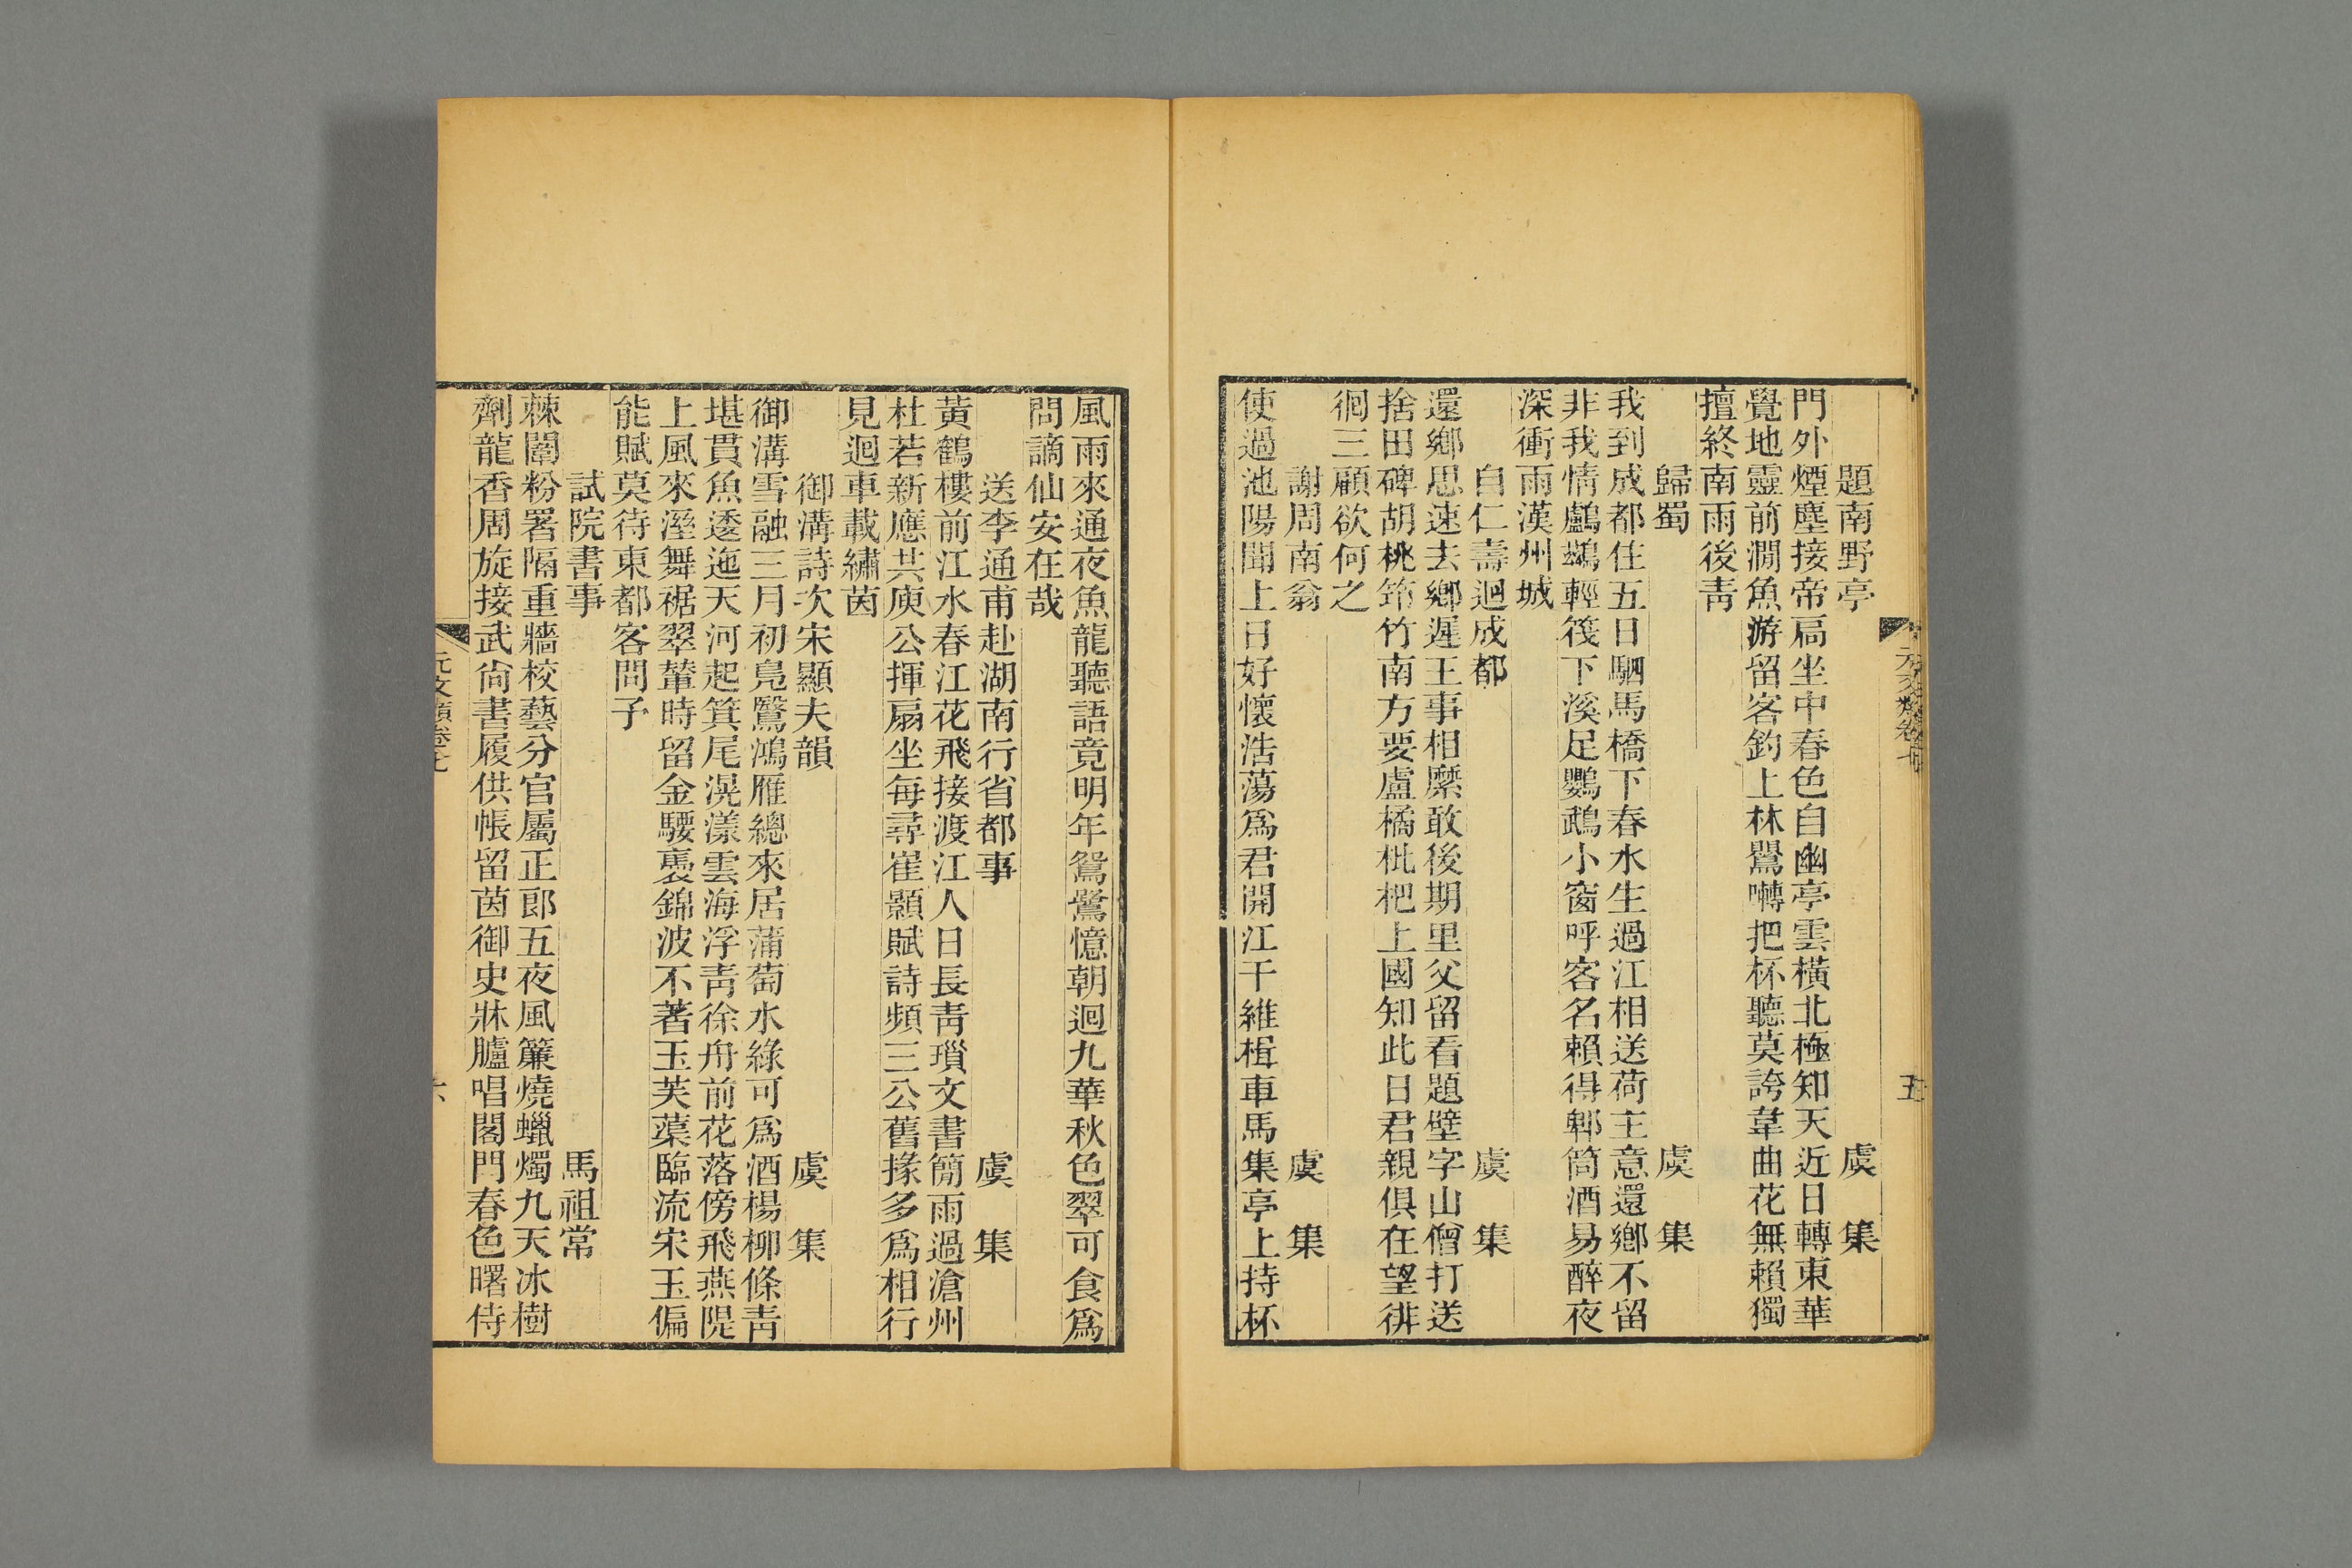 題南野亭　虞　集
門外煙塵接帝扃坐中春色自幽亭雲橫北極知天近日轉東華
覺地靈前澗魚游留客釣上林鶯囀把杯聽莫誇韋曲花無賴獨
擅終南雨後靑
歸蜀　虞　集
我到成都住五日駟馬橋下春水生過江相送荷主意還鄉不留
非我情鸕鷀輕筏下溪足鸚鵡小窗呼客名賴得郫筒酒易醉夜
深衝雨漢州城
自仁壽迴成都　虞　集
還鄉思速去鄉遲王事相縻敢後期里父留看題壁字山僧打送
捨田碑胡桃筇竹南方要盧橘枇杷上國知此日君親俱在望徘
徊三顧欲何之
謝周南翁　虞　集
使過池陽聞上日好懷浩蕩爲君開江干維楫車馬集亭上持杯
元文類卷七
五
風雨來通夜魚龍聽語竟明年鴛鷺憶朝迴九華秋色翠可食爲
問謫仙安在哉
送李通甫赴湖南行省都事　虞　集
黃鶴樓前江水春江花飛接渡江人日長靑瑣文書簡雨過滄州
杜若新應共庾公揮扇坐每尋崔顥賦詩頻三公舊掾多爲相行
見迴車載繡茵
御溝詩次宋顯夫韻　虞　集
御溝雪融三月初鳧鷖鴻雁總來居蒲萄水綠可爲酒楊柳條靑
堪貫魚逶迤天河起箕尾滉漾雲海浮靑徐舟前花落傍飛燕隄
上風來溼舞裾翠輦時留金騕褭錦波不著玉芙蕖臨流宋玉偏
能賦莫待東都客問子
試院書事　馬祖常
棘闈粉署隔重牆校藝分官屬正郎五夜風簾燒蠟燭九天冰樹
劑龍香周旋接武尙書履供帳留茵御史牀臚唱閣門春色曙侍
元文類卷七
六